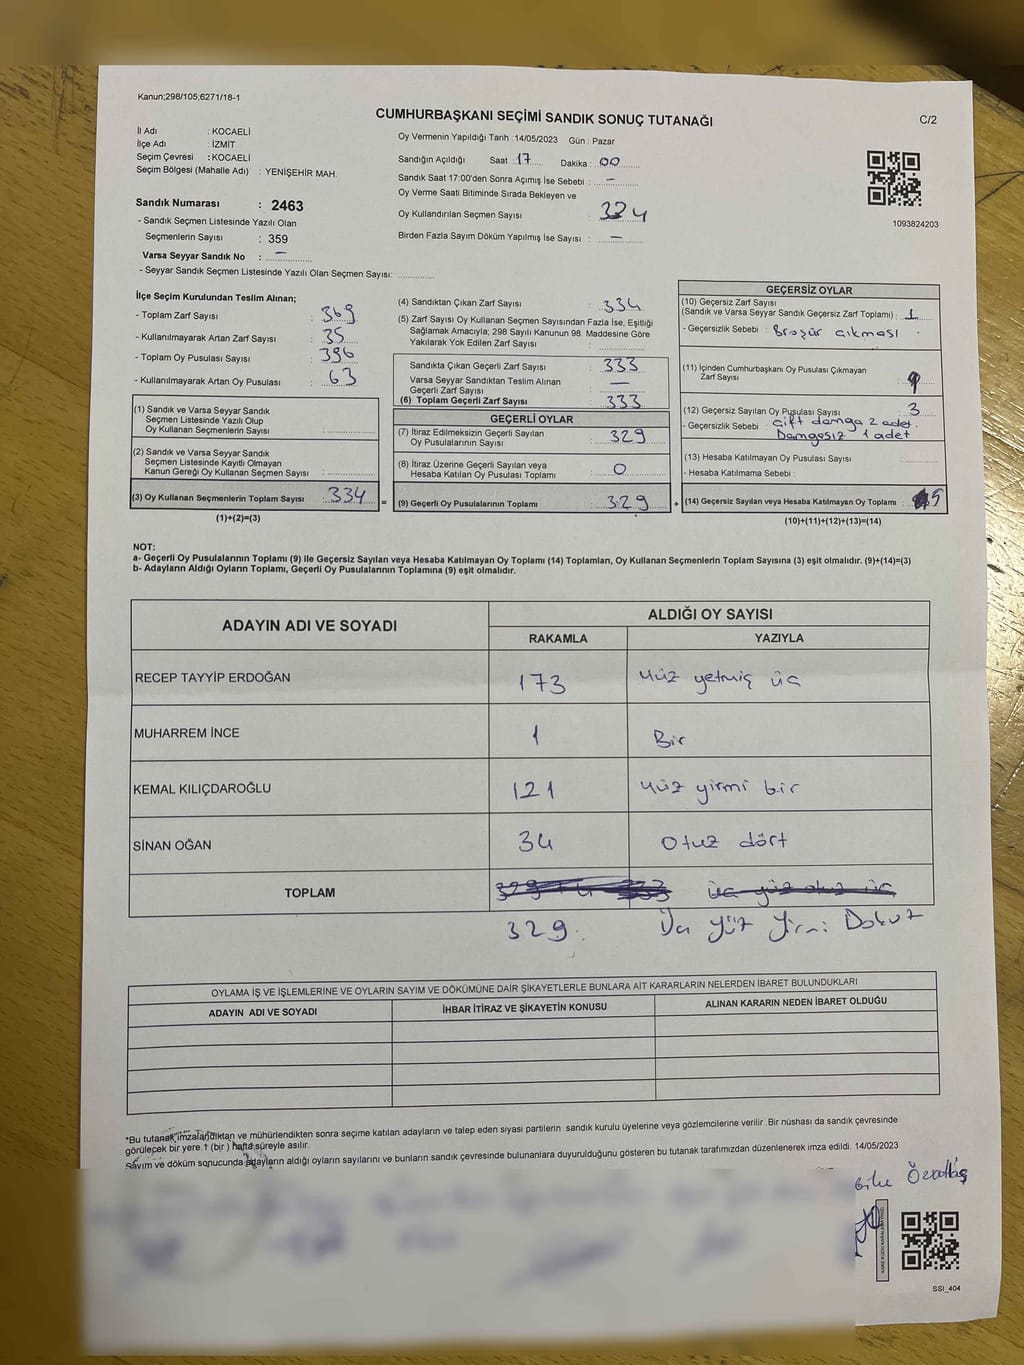 Kanun;298/105;6271/18-1
CUMHURBAŞKANI SEÇİMİ SANDIK SONUÇ TUTANAĞI
C/2
İl Adı : KOCAELİ
İlçe Adı : İZMİT
Seçim Çevresi : KOCAELİ
Seçim Bölgesi (Mahalle Adı) : YENİŞEHİR MAH.
Sandık Numarası : 2463
- Sandık Seçmen Listesinde Yazılı Olan
Seçmenlerin Sayısı : 359
Varsa Seyyar Sandık No : –
- Seyyar Sandık Seçmen Listesinde Yazılı Olan Seçmen Sayısı:
Oy Vermenin Yapıldığı Tarih : 14/05/2023 Gün : Pazar
Sandığın Açıldığı Saat : 17 Dakika : 00
Sandık Saat 17:00'den Sonra Açımış İse Sebebi : –
Oy Verme Saati Bitiminde Sırada Bekleyen ve
Oy Kullandırılan Seçmen Sayısı : 334
Birden Fazla Sayım Döküm Yapılmış İse Sayısı : –
1093824203
İlçe Seçim Kurulundan Teslim Alınan;
- Toplam Zarf Sayısı : 369
- Kullanılmayarak Artan Zarf Sayısı : 35
- Toplam Oy Pusulası Sayısı : 396
- Kullanılmayarak Artan Oy Pusulası : 63
(1) Sandık ve Varsa Seyyar Sandık
Seçmen Listesinde Yazılı Olup
Oy Kullanan Seçmenlerin Sayısı :
(2) Sandık ve Varsa Seyyar Sandık
Seçmen Listesinde Kayıtlı Olmayan
Kanun Gereği Oy Kullanan Seçmen Sayısı :
(3) Oy Kullanan Seçmenlerin Toplam Sayısı : 334
(1)+(2)=(3)
(4) Sandıktan Çıkan Zarf Sayısı : 334
(5) Zarf Sayısı Oy Kullanan Seçmen Sayısından Fazla İse, Eşitliği
Sağlamak Amacıyla; 298 Sayılı Kanunun 98. Maddesine Göre
Yakılarak Yok Edilen Zarf Sayısı :
Sandıkta Çıkan Geçerli Zarf Sayısı : 333
Varsa Seyyar Sandıktan Teslim Alınan
Geçerli Zarf Sayısı : –
(6) Toplam Geçerli Zarf Sayısı : 333
GEÇERLİ OYLAR
(7) İtiraz Edilmeksizin Geçerli Sayılan
Oy Pusulalarının Sayısı : 329
(8) İtiraz Üzerine Geçerli Sayılan veya
Hesaba Katılan Oy Pusulası Toplamı : 0
= (9) Geçerli Oy Pusulalarının Toplamı : 329
GEÇERSİZ OYLAR
(10) Geçersiz Zarf Sayısı
(Sandık ve Varsa Seyyar Sandık Geçersiz Zarf Toplamı) : 1
- Geçersizlik Sebebi : Broşür çıkması
(11) İçinden Cumhurbaşkanı Oy Pusulası Çıkmayan
Zarf Sayısı :
(12) Geçersiz Sayılan Oy Pusulası Sayısı : 3
- Geçersizlik Sebebi : Çift damga 2 adet.
Damgasız 1 adet
(13) Hesaba Katılmayan Oy Pusulası Sayısı :
- Hesaba Katılmama Sebebi :
+ (14) Geçersiz Sayılan veya Hesaba Katılmayan Oy Toplamı : 5
(10)+(11)+(12)+(13)=(14)
NOT:
a- Geçerli Oy Pusulalarının Toplamı (9) ile Geçersiz Sayılan veya Hesaba Katılmayan Oy Toplamı (14) Toplamları, Oy Kullanan Seçmenlerin Toplam Sayısına (3) eşit olmalıdır. (9)+(14)=(3)
b- Adayların Aldığı Oyların Toplamı, Geçerli Oy Pusulalarının Toplamına (9) eşit olmalıdır.
ADAYIN ADI VE SOYADI
ALDIĞI OY SAYISI
RAKAMLA YAZIYLA
RECEP TAYYİP ERDOĞAN 173 Yüz yetmiş üç
MUHARREM İNCE 1 Bir
KEMAL KILIÇDAROĞLU 121 Yüz yirmi bir
SİNAN OĞAN 34 Otuz dört
TOPLAM 329 + 4 333 üç yüz otuz üç
329 Üç yüz yirmi Dokuz
OYLAMA İŞ VE İŞLEMLERİNE VE OYLARIN SAYIM VE DÖKÜMÜNE DAİR ŞİKAYETLERLE BUNLARA AİT KARARLARIN NELERDEN İBARET BULUNDUKLARI
ADAYIN ADI VE SOYADI İHBAR İTİRAZ VE ŞİKAYETİN KONUSU ALINAN KARARIN NEDEN İBARET OLDUĞU
*Bu tutanak imzalandıktan ve mühürlendikten sonra seçime katılan adayların ve talep eden siyasi partilerin sandık kurulu üyelerine veya gözlemcilerine verilir. Bir nüshası da sandık çevresinde
görülecek bir yere 1 (bir) hafta süreyle asılır.
Sayım ve döküm sonucunda adayların aldığı oyların sayılarını ve bunların sandık çevresinde bulunanlara duyurulduğunu gösteren bu tutanak tarafımızdan düzenlenerek imza edildi. 14/05/2023
SSI_404